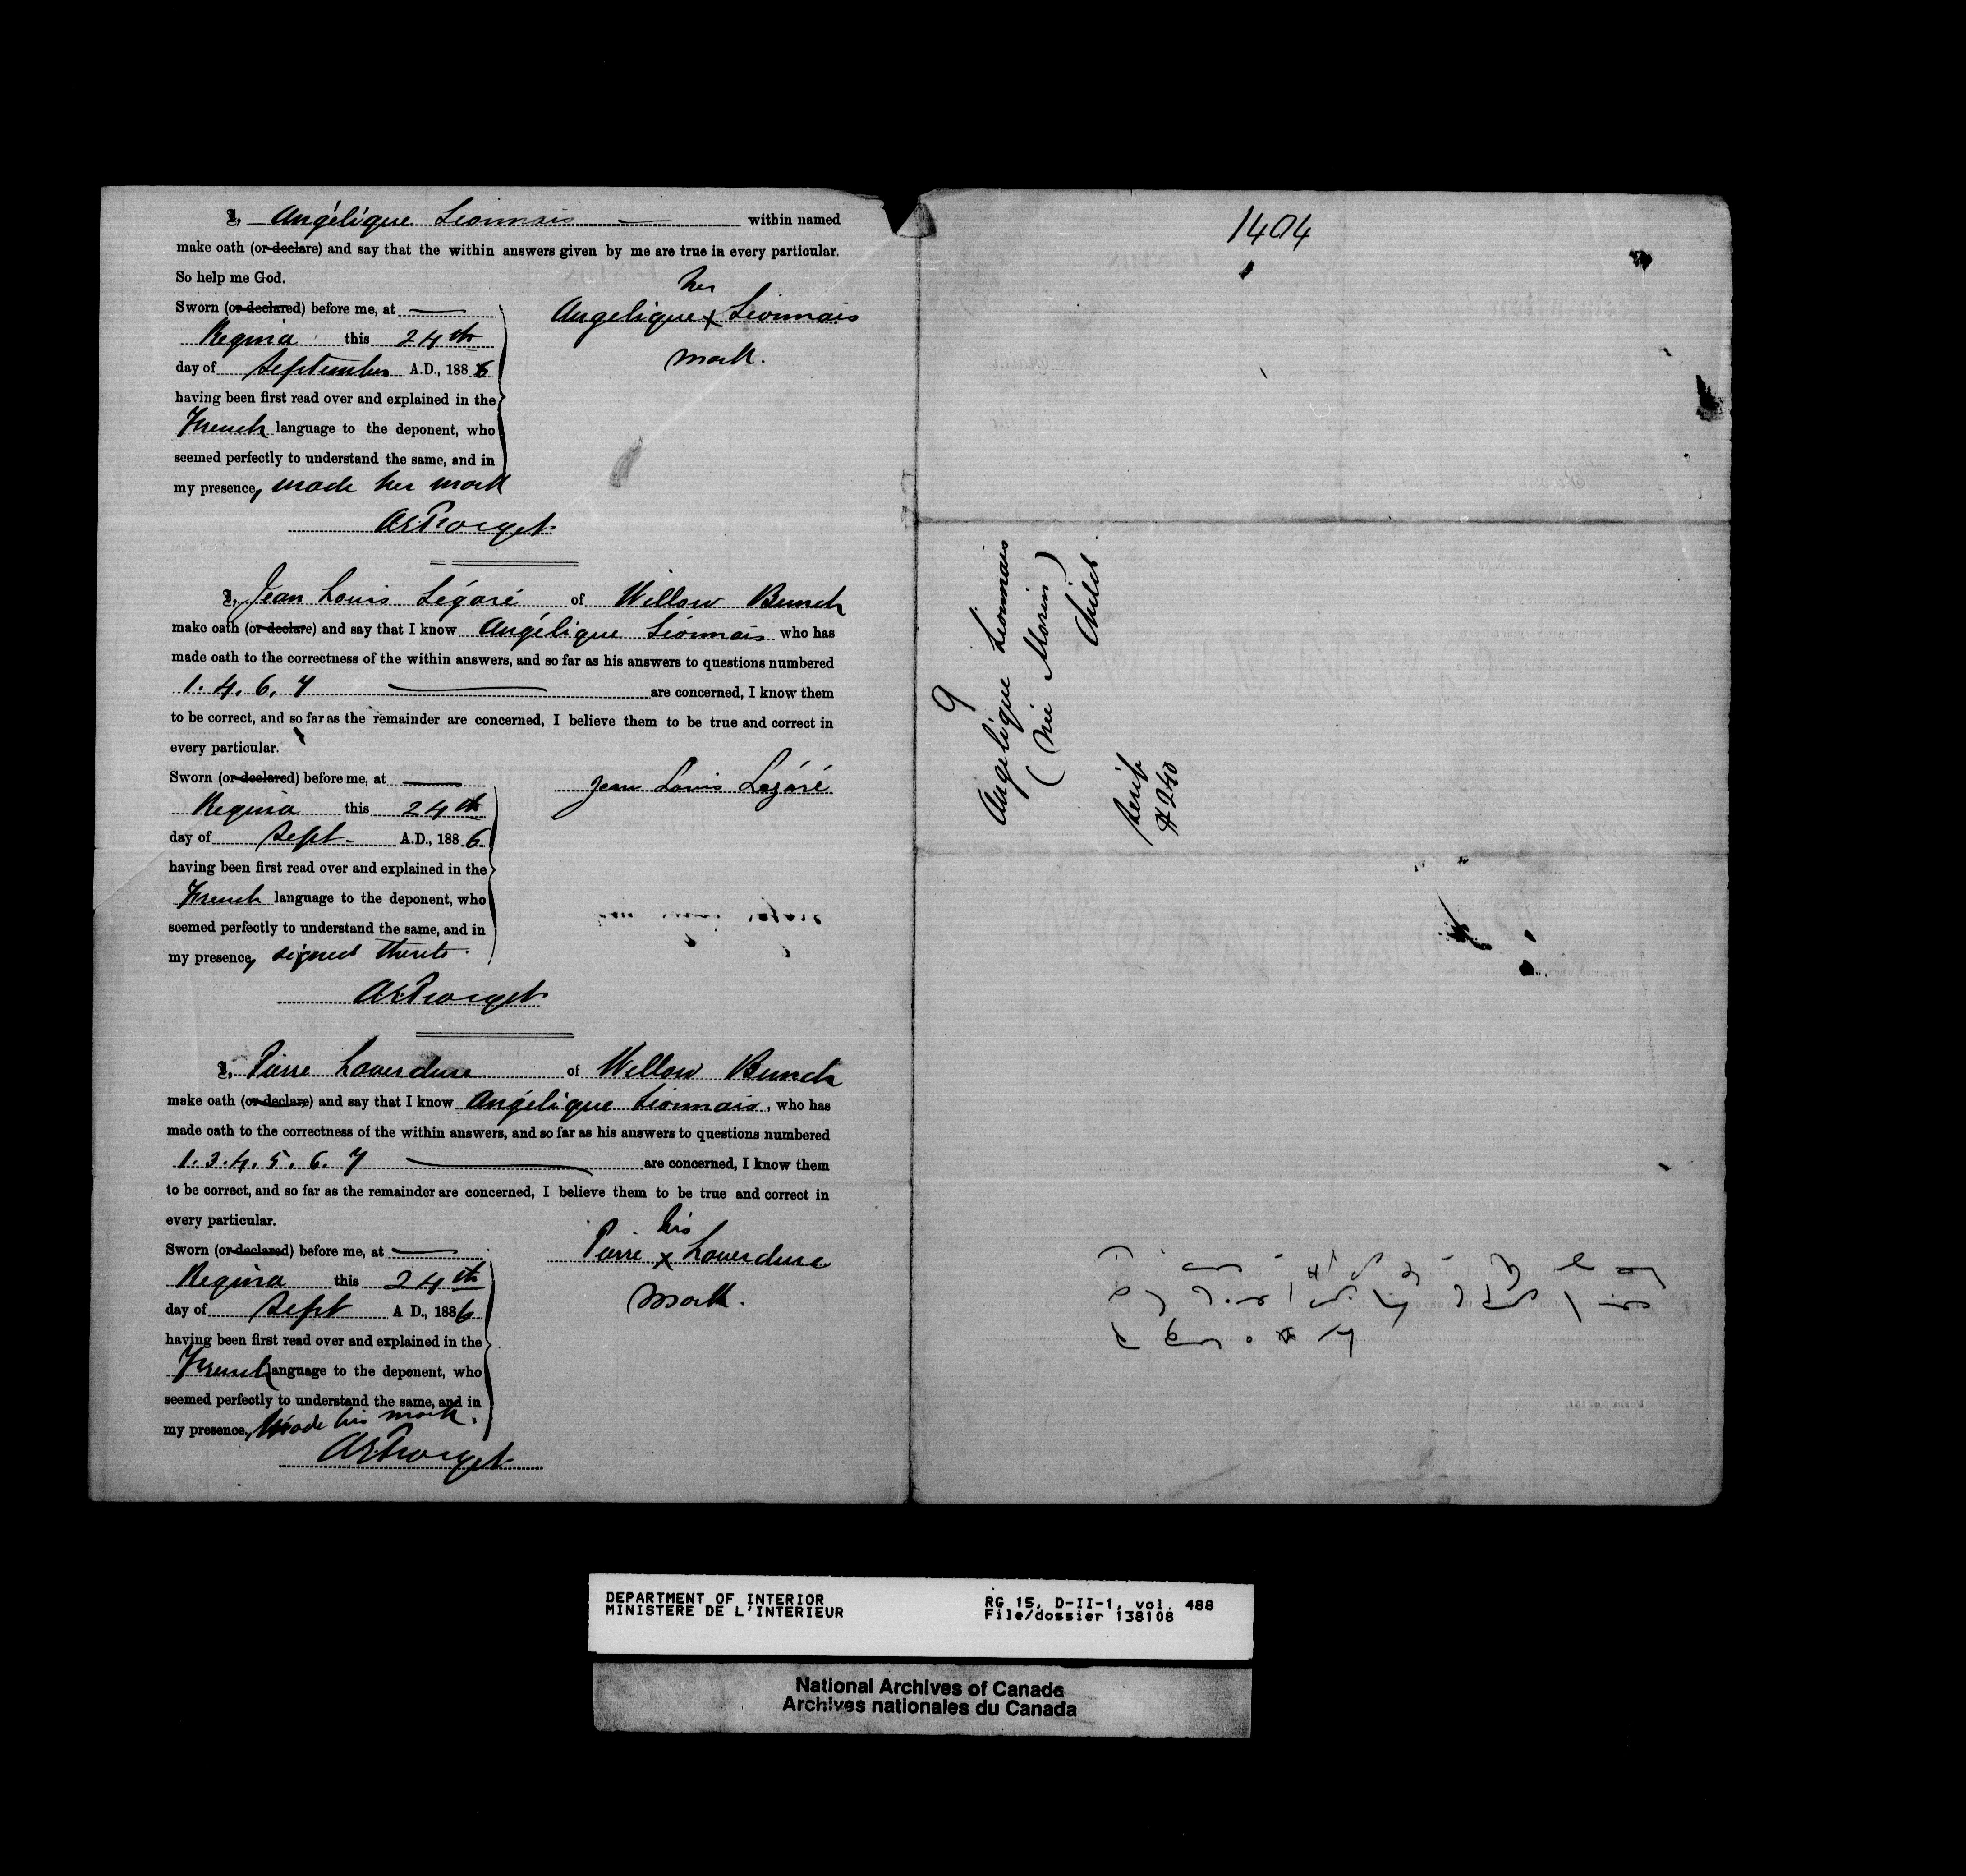 I, Angélique Lionnais within named
make oath (or declare) and say that the within answers given by me are true in every particular.
So help me God.
Sworn (or declared) before me, at
Regina this 24th
day of September A.D., 1886
having been first read over and explained in the
French language to the deponent, who
seemed perfectly to understand the same, and in
my presence, made her mark
her
Angelique x Lionnais
mark.
AEForget
I, Jean Louis Légaré of Willow Bunch
make oath (or declare) and say that I know Angélique Lionnais who has
made oath to the correctness of the within answers, and so far as his answers to questions numbered
1. 4. 6. 7 are concerned, I know them
to be correct, and so far as the remainder are concerned, I believe them to be true and correct in
every particular.
Sworn (or declared) before me, at
Regina this 24th
day of Sept. A.D., 1886
having been first read over and explained in the
French language to the deponent, who
seemed perfectly to understand the same, and in
my presence, signed thereto.
Jean Louis Legáré
AEForget
I, Pierre Laverdure of Willow Bunch
make oath (or declare) and say that I know Angélique Lionnais, who has
made oath to the correctness of the within answers, and so far as his answers to questions numbered
1. 3. 4. 5. 6. 7 are concerned, I know them
to be correct, and so far as the remainder are concerned, I believe them to be true and correct in
every particular.
Sworn (or declared) before me, at
Regina this 24th
day of Sept A D., 1886
having been first read over and explained in the
French language to the deponent, who
seemed perfectly to understand the same, and in
my presence, made his mark.
his
Pierre x Laverdure
mark.
AEForget
1404
9
Angelique Lionnais
(née Morin)
Child
Scrip
$240
DEPARTMENT OF INTERIOR
MINISTERE DE L'INTERIEUR
RG 15, D-II-1, vol. 488
File/dossier 138108
National Archives of Canada
Archives nationales du Canada